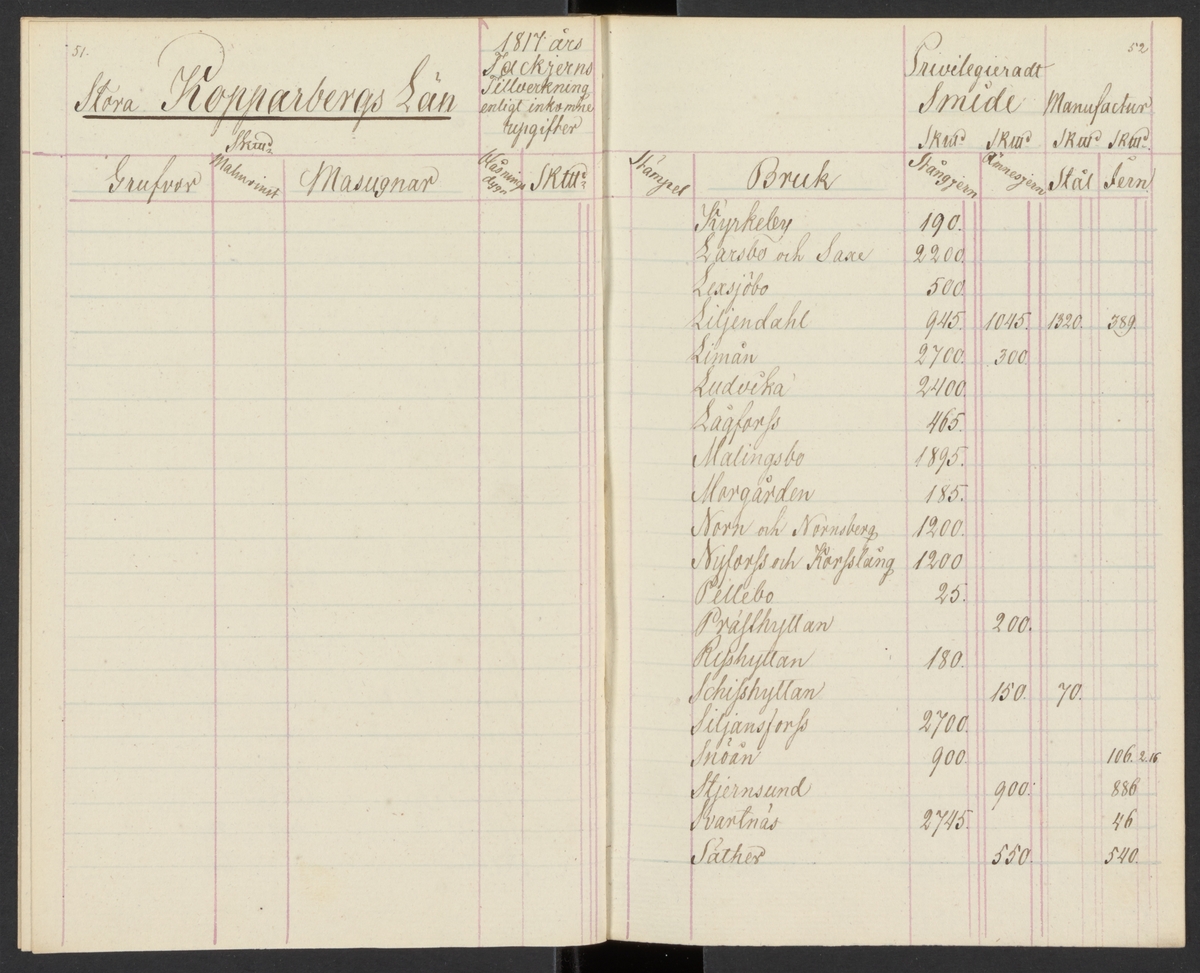 51.
Stora Kopparbergs Län
1817 års
Tackjerns
Tillverkning
enligt inkomne
upgifter
Grufvor
Skttd
Malmvinst
Masugnar
Blåsnings
dygn
Skttd
52
Privilegieradt
Smide Manufactur
Skttd Skttd Skttd Skttd
Stämpel Bruk Stångjern Ämnesjern Stål Jern
Kyrkeby 190.
Larsbo och Saxe 2200.
Lexsjöbo 500.
Liljendahl 945. 1045. 1320. 389.
Limån 2700. 300
Ludvika 2400.
Lågforss 465.
Malingsbo 1895.
Morgården 185.
Norn och Nornsberg 1200.
Nyforss och Korsslång 1200
Pellebo 25.
Prästhyttan 200.
Risshyttan 180.
Schisshyttan 150. 70.
Siljansforss 2700.
Snöån 900. 106. 2. 16
Stjernsund 900. 886
Svartnäs 2745. 46
Säther 550. 540.